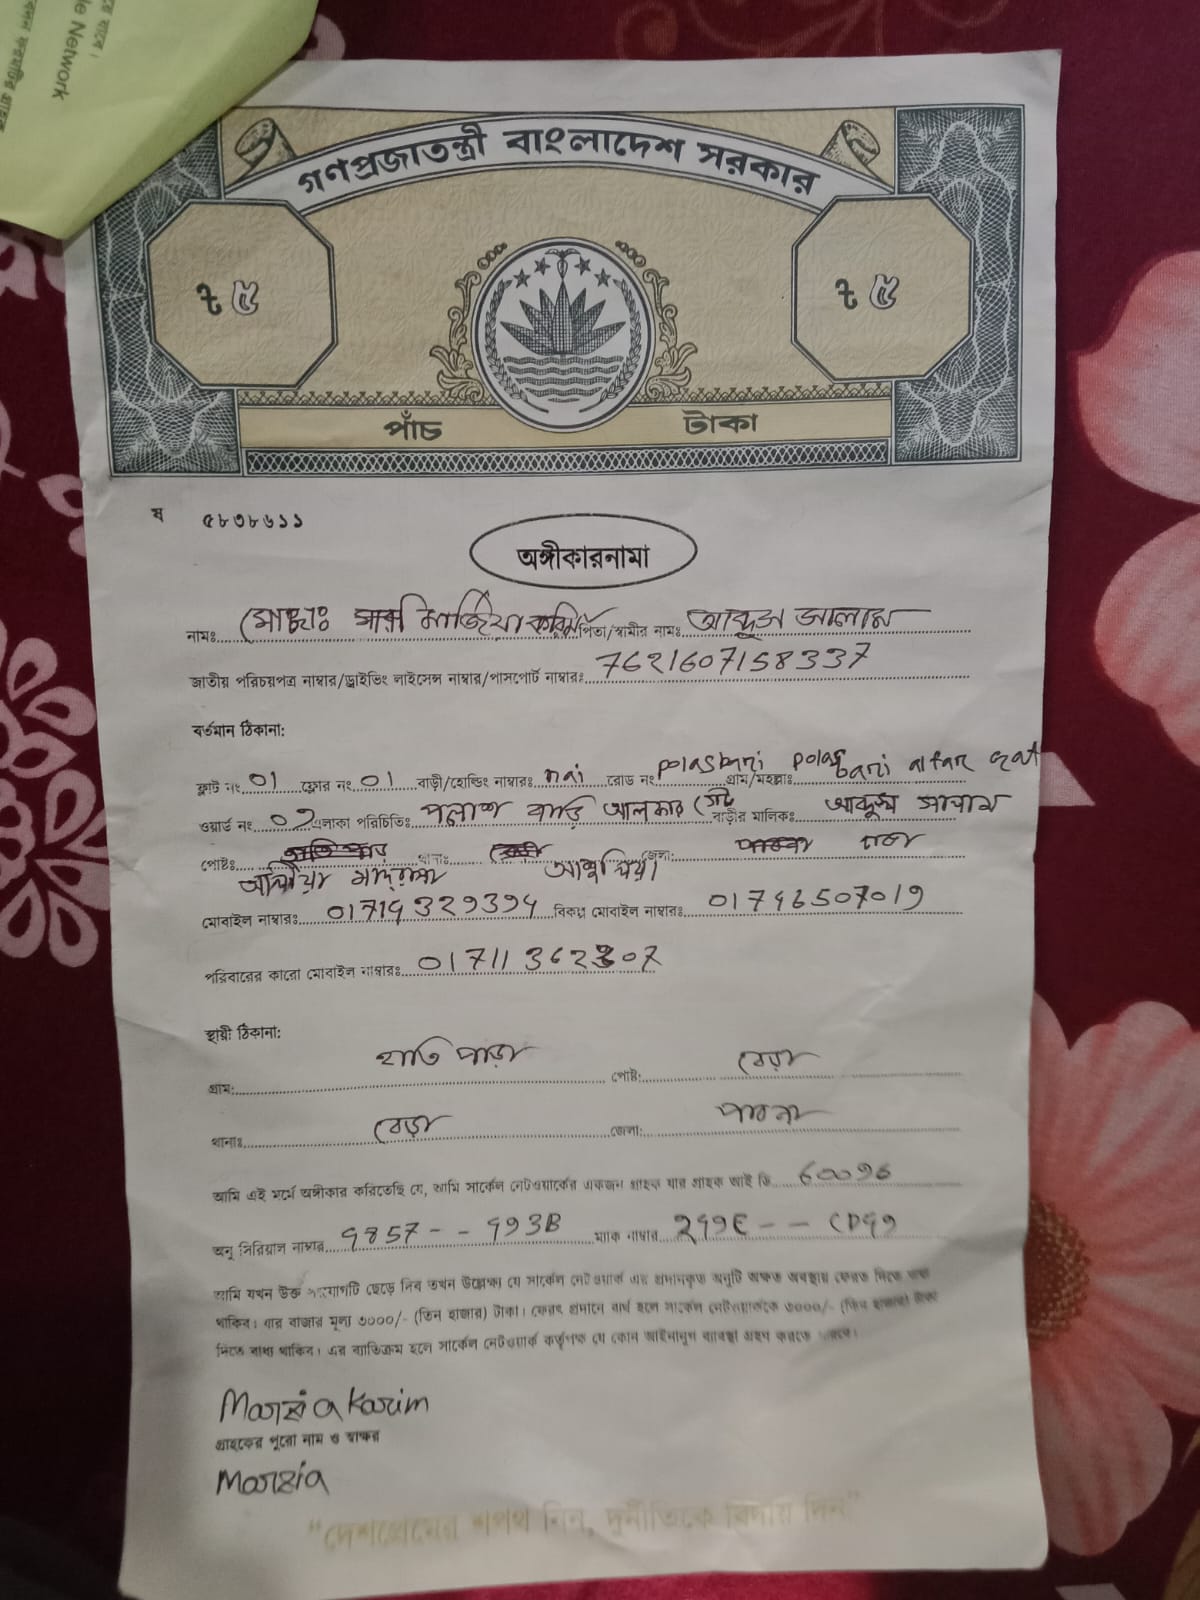 de Network
গণপ্রজাতন্ত্রী বাংলাদেশ সরকার
৳ ৫ ৳ ৫
পাঁচ টাকা
ষ ৫৮৩৮৬১১
অঙ্গীকারনামা
নামঃ মোছাঃ মার্জিয়া করিম পিতা/স্বামীর নামঃ আব্দুস সালাম
জাতীয় পরিচয়পত্র নাম্বার/ড্রাইভিং লাইসেন্স নাম্বার/পাসপোর্ট নাম্বারঃ 7621607158337
বর্তমান ঠিকানা:
ফ্লাট নং 01 ফ্লোর নং 01 বাড়ী/হোল্ডিং নাম্বারঃ nai রোড নং polasbari গ্রাম/মহল্লাঃ polasbari altar gat
ওয়ার্ড নং 07 এলাকা পরিচিতিঃ পলাশ বাড়ি গেট বাড়ীর মালিকঃ আব্দুস সালাম
পোষ্টঃ থানাঃ জেলা: ঢাকা
আলীয়া মাদ্রাসা আশুলিয়া
মোবাইল নাম্বারঃ 01714329394 বিকল্প মোবাইল নাম্বারঃ 01746507019
পরিবারের কারো মোবাইল নাম্বারঃ
স্থায়ী ঠিকানা:
গ্রাম: হাতি পাড়া পোষ্ট: বেড়া
থানাঃ বেড়া জেলা: পাবনা
আমি এই মর্মে অঙ্গীকার করিতেছি যে, আমি সার্কেল নেটওয়ার্কের একজন গ্রাহক যার গ্রাহক আই ডি 60096
অনু সিরিয়াল নাম্বার 9857-- 993B ম্যাক নাম্বার
আমি যখন উক্ত সংযোগটি ছেড়ে দিব তখন উল্লেখ্য যে সার্কেল নেটওয়ার্ক এর প্রদানকৃত অনুটি অক্ষত অবস্থায় ফেরত দিতে বাধ্য
থাকিব। যার বাজার মূল্য ৩০০০/- (তিন হাজার) টাকা। ফেরৎ প্রদানে ব্যর্থ হলে সার্কেল নেটওয়ার্ককে ৩০০০/- (তিন হাজার) টাকা
দিতে বাধ্য থাকিব। এর ব্যতিক্রম হলে সার্কেল নেটওয়ার্ক কর্তৃপক্ষ যে কোন আইনানুগ ব্যাবস্থা গ্রহণ করতে পারবে।
Marzia Karim
গ্রাহকের পুরো নাম ও স্বাক্ষর
Marzia
"দেশপ্রেমের শপথ নিন, দুর্নীতিকে বিদায় দিন"